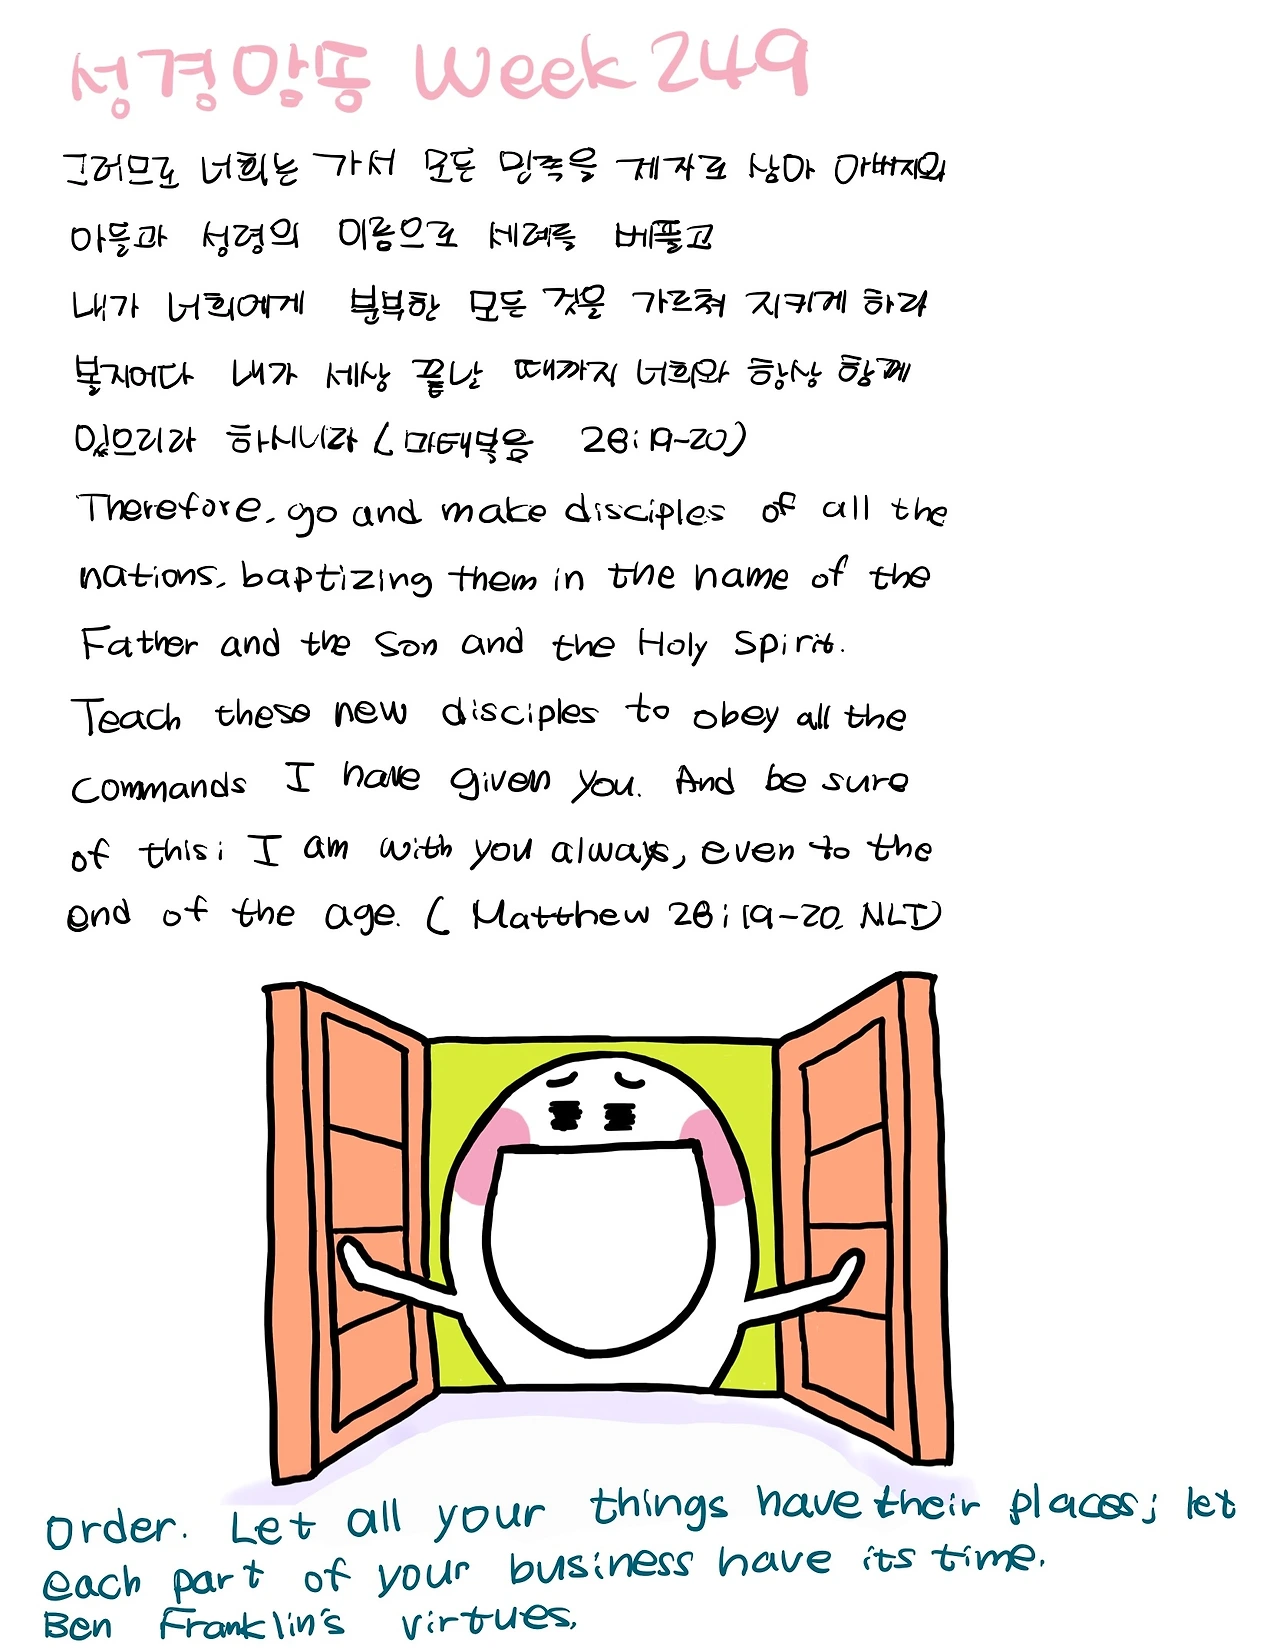 성경암송 Week 249
그러므로 너희는 가서 모든 민족을 제자로 삼아 아버지와
아들과 성령의 이름으로 세례를 베풀고
내가 너희에게 분부한 모든 것을 가르쳐 지키게 하라
볼지어다 내가 세상 끝날 때까지 너희와 항상 함께
있으리라 하시니라 (마태복음 28:19-20)
Therefore, go and make disciples of all the
nations, baptizing them in the name of the
Father and the Son and the Holy Spirit.
Teach these new disciples to obey all the
commands I have given you. And be sure
of this: I am with you always, even to the
end of the age. (Matthew 28:19-20. NLT)
Order. Let all your things have their places; let
each part of your business have its time.
Ben Franklin's virtues.